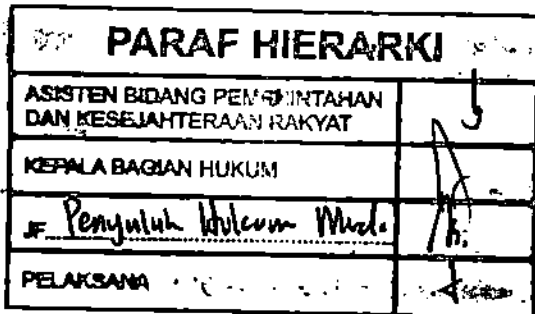 PARAF HIERARKI
ASISTEN BIDANG PEMERINTAHAN
DAN KESEJAHTERAAN RAKYAT
KEPALA BAGIAN HUKUM
JF Penyuluh Hukum Mud.
PELAKSANA